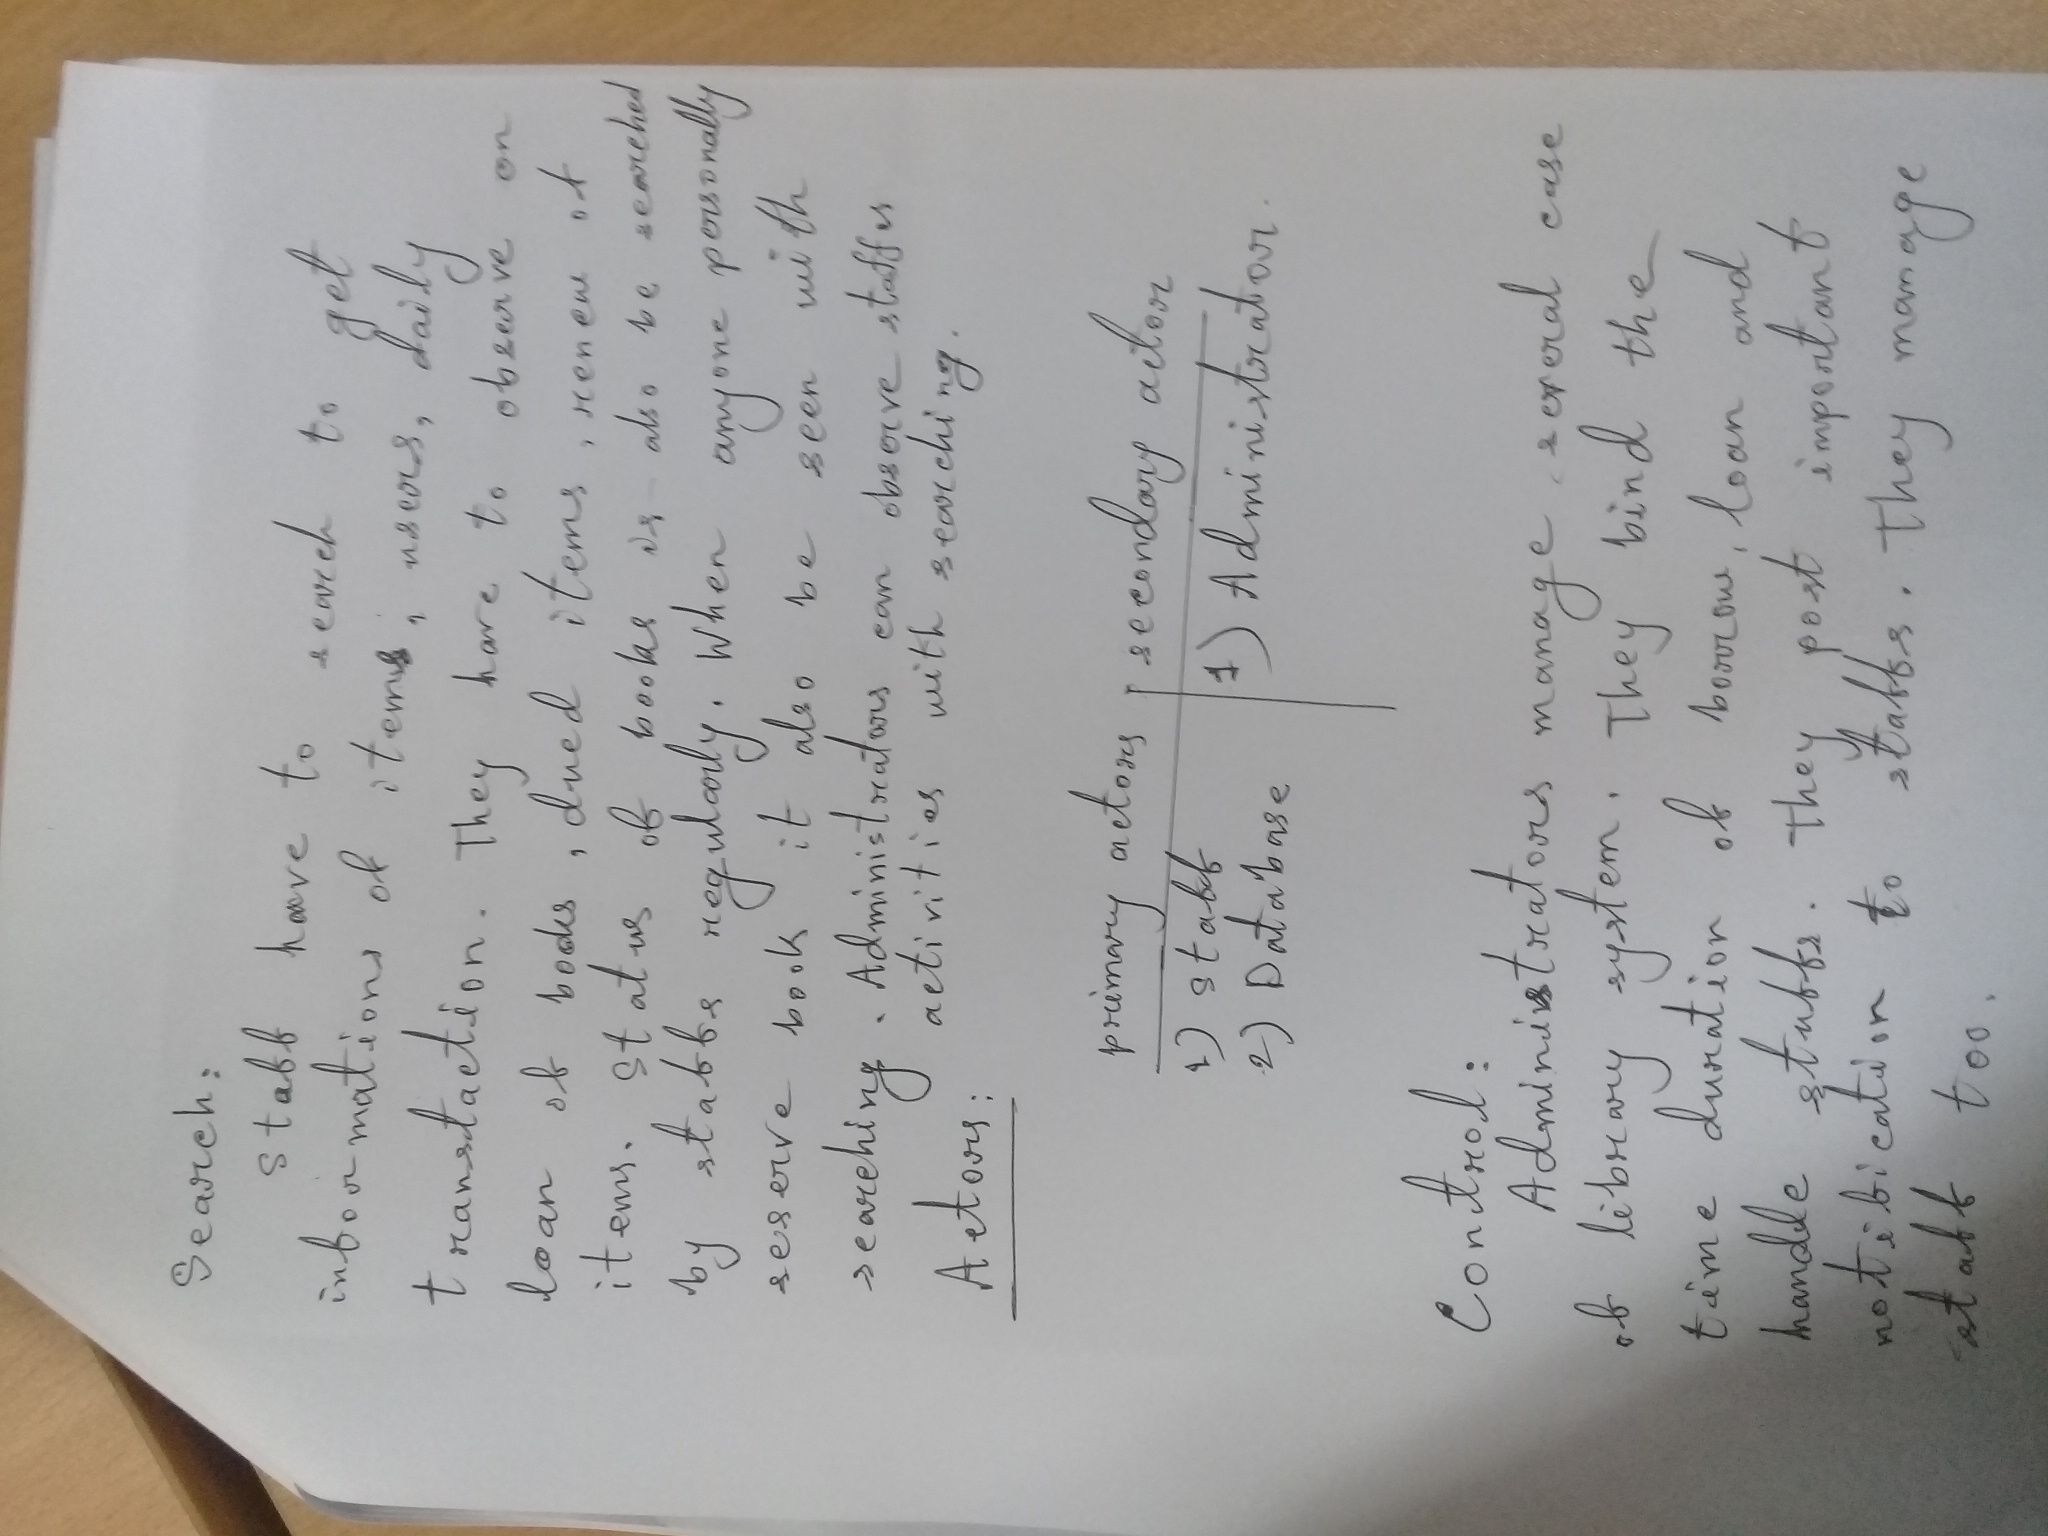 Search:
Staff have to search to get
informations of items, users, daily
transtaction. They have to observe on
loan of books, dued items, renew of
items. Status of books is also be searched
by staffs regularly. When anyone personally
reserve book it also be seen with
searching. Administrators can observe staffes
activities with searching.
Actors:
primary actors secondary actor
1) Staff 1) Administrator.
2) Database
Control:
Administrators manage several case
of library system. They bind the
time duration of borrow, loan and
handle stuffs. They post important
notification to staffs. They manage
staff too.